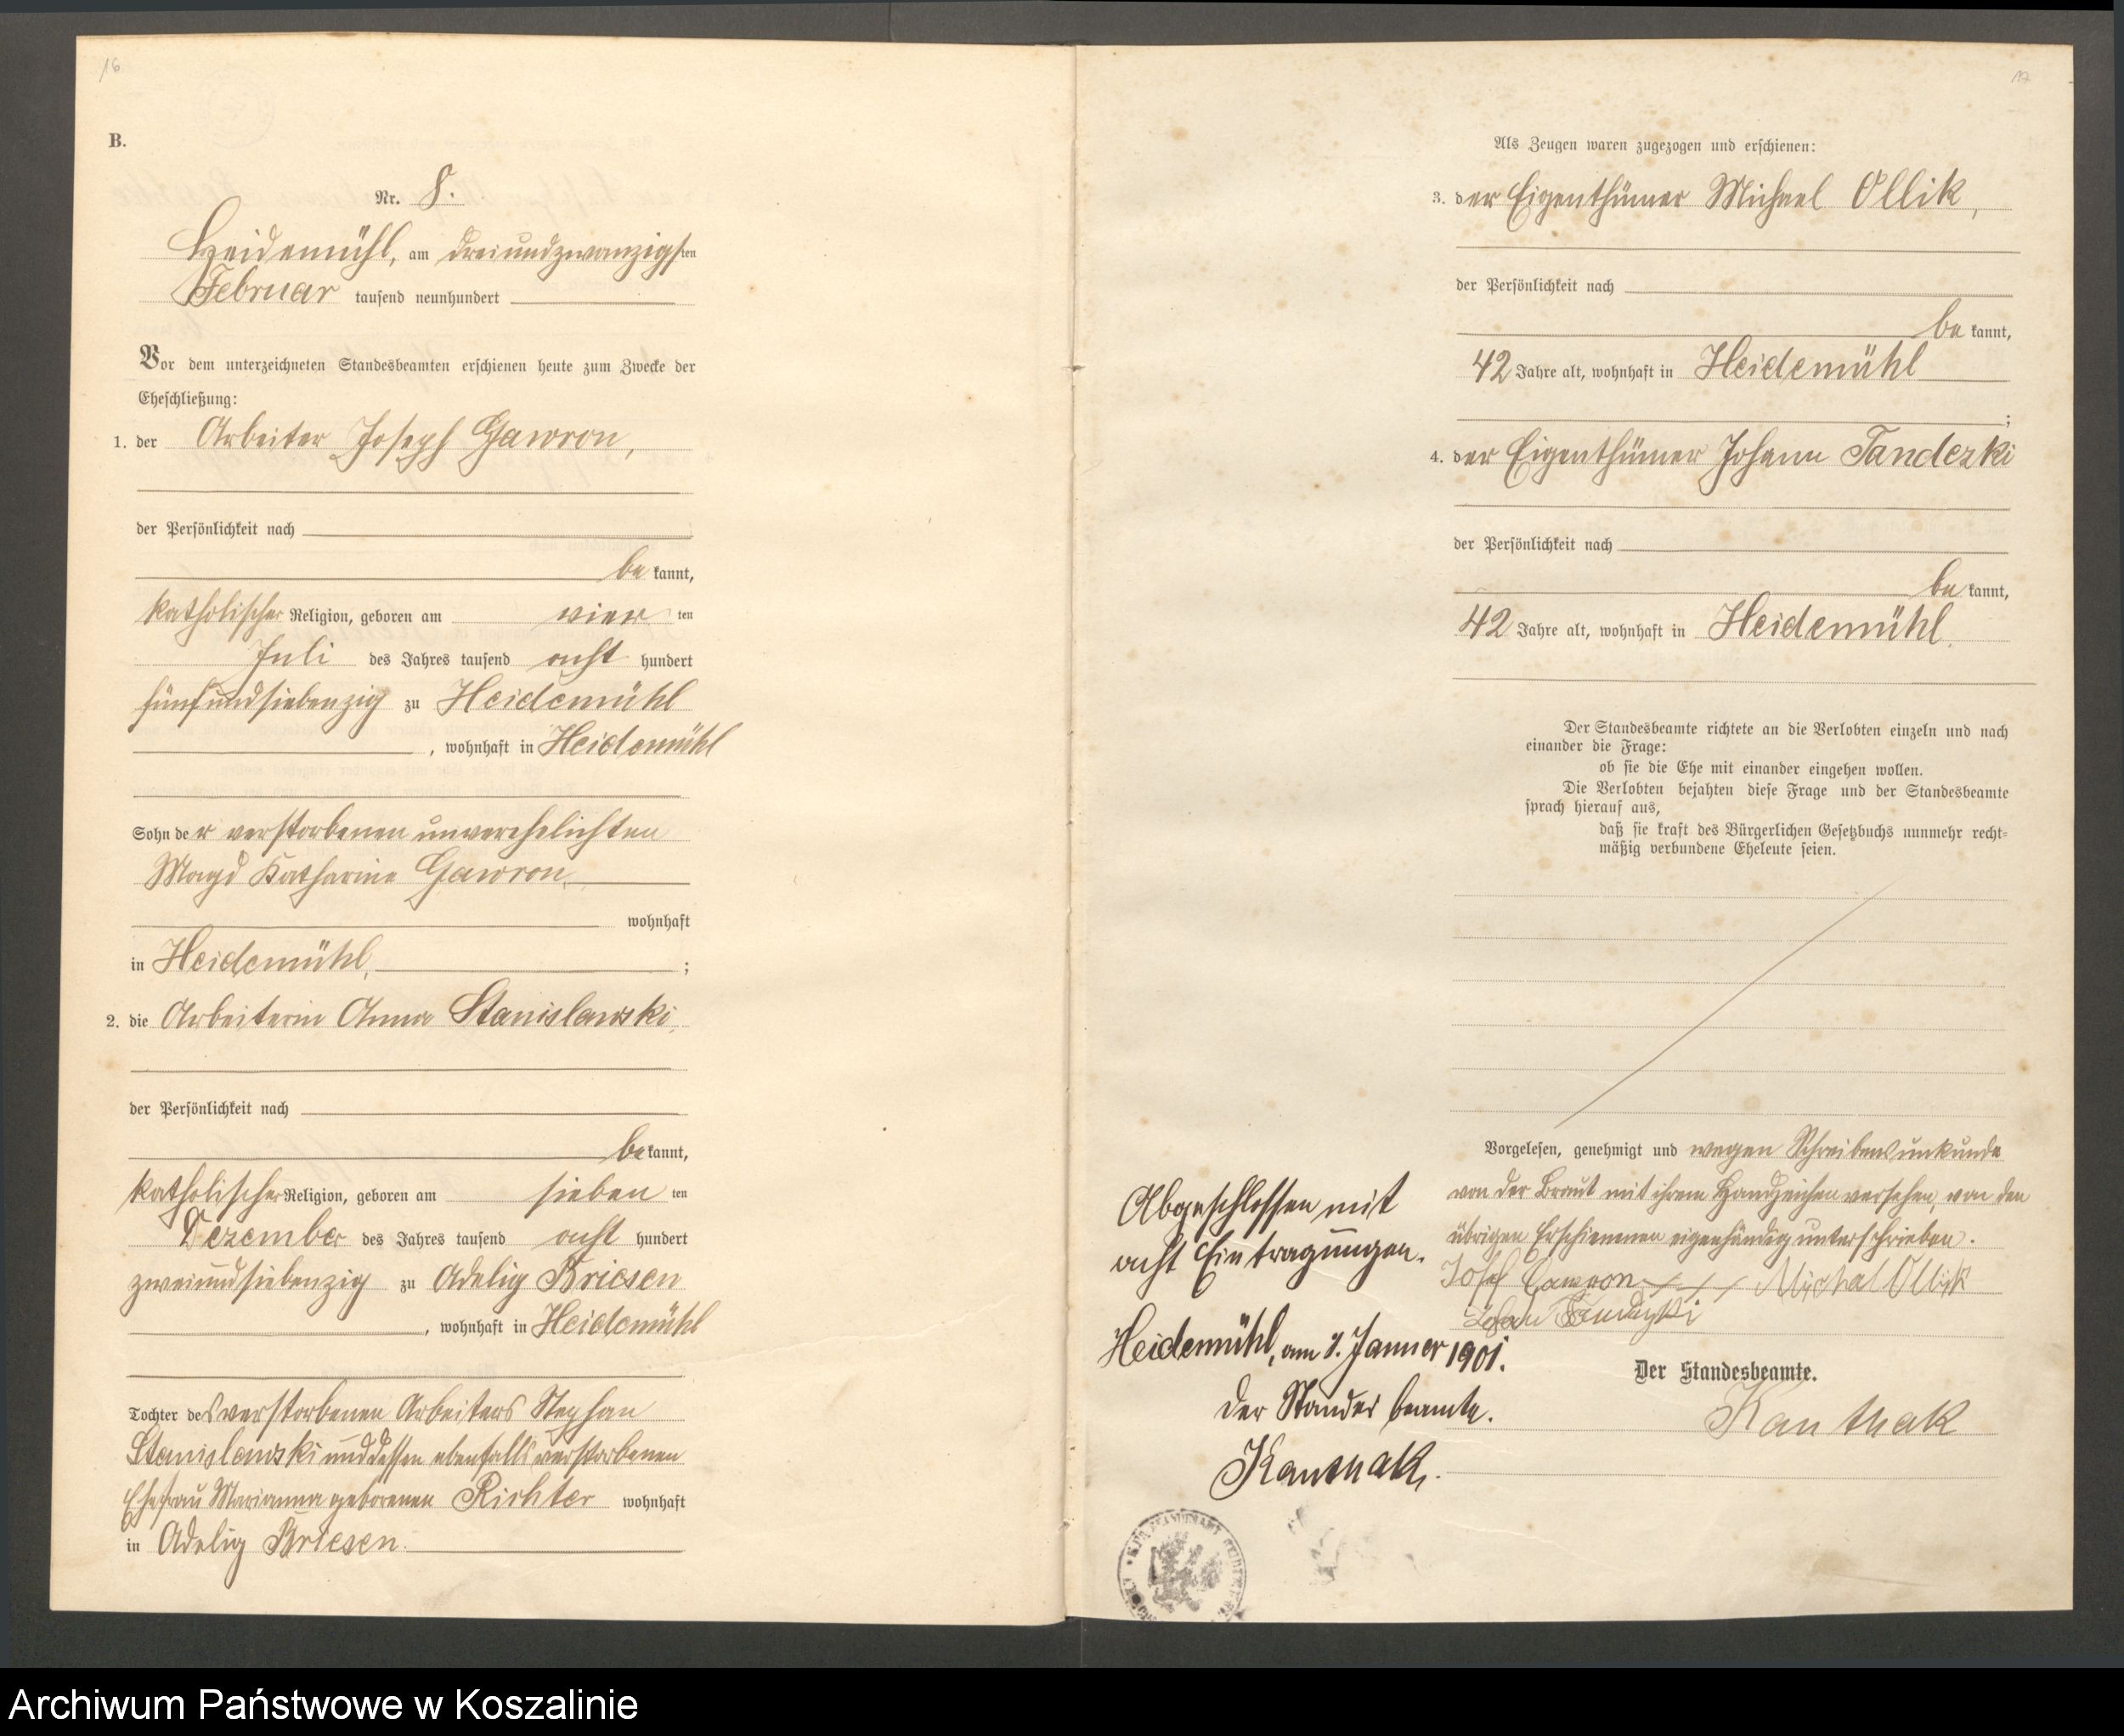 16
B.
Nr. 8.
Heidemühl, am dreiundzwanzigsten
Februar tausend neunhundert
Vor dem unterzeichneten Standesbeamten erschienen heute zum Zwecke der
Eheschließung:
1. der Arbeiter Joseph Gawron,
der Persönlichkeit nach
bekannt,
katholischer Religion, geboren am vierten
Juli des Jahres tausend achthundert
fünfundsiebenzig zu Heidemühl
, wohnhaft in Heidemühl
Sohn der verstorbenen unverehelichten
Magd Katharine Gawron,
wohnhaft
in Heidemühl, ;
2. die Arbeiterin Anna Stanislawski,
der Persönlichkeit nach
bekannt,
katholischer Religion, geboren am siebenten
Dezember des Jahres tausend achthundert
zweiundsiebenzig zu Adelig Briesen
, wohnhaft in Heidemühl
Tochter des verstorbenen Arbeiters Stephan
Stanislawski und dessen ebenfalls verstorbenen
Ehefrau Marianna geborenen Richter wohnhaft
in Adelig Briesen.
17
Als Zeugen waren zugezogen und erschienen:
3. der Eigenthümer Michael Ollik,
der Persönlichkeit nach
bekannt,
42 Jahre alt, wohnhaft in Heidemühl
;
4. der Eigenthümer Johann Tandezki
der Persönlichkeit nach
bekannt,
42 Jahre alt, wohnhaft in Heidemühl.
Der Standesbeamte richtete an die Verlobten einzeln und nach
einander die Frage:
ob sie die Ehe mit einander eingehen wollen.
Die Verlobten bejahten diese Frage und der Standesbeamte
sprach hierauf aus,
daß sie kraft des Bürgerlichen Gesetzbuchs nunmehr recht-
mäßig verbundene Eheleute seien.
Vorgelesen, genehmigt und wegen Schreibensunkunde
von der Braut mit ihrem Handzeichen versehen, von den
übrigen Erschienenen eigenhändig unterschrieben.
Josef Gawron +++ Michal Ollik
Der Standesbeamte.
Kanthak
Abgeschlossen mit
acht Eintragungen.
Heidemühl, am 1. Januar 1901.
Der Standesbeamte.
Kanthak.
Archiwum Państwowe w Koszalinie